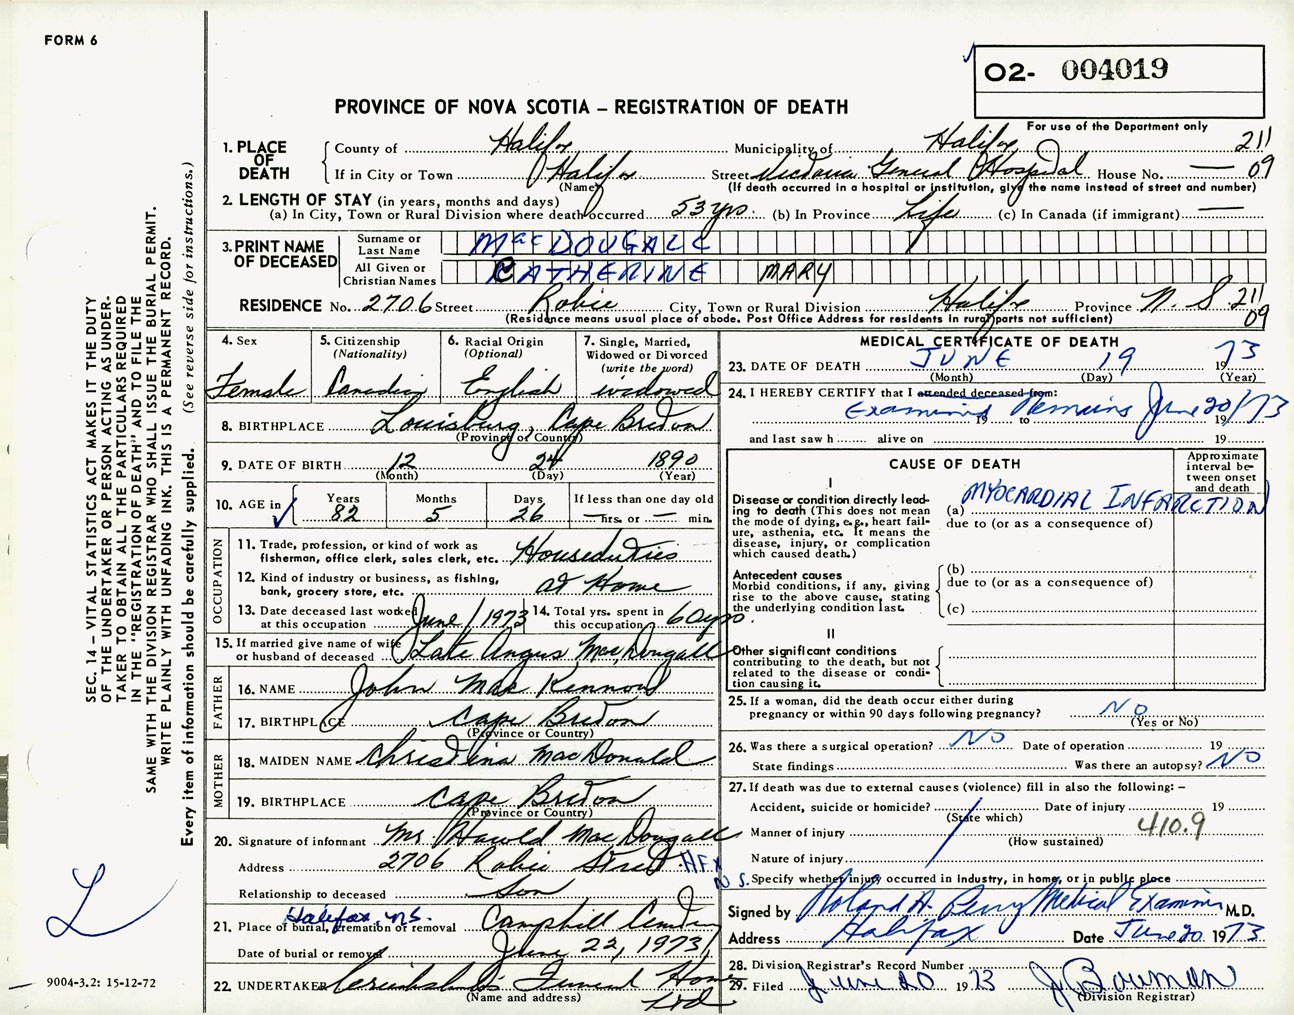 FORM 6
O2- 004019
PROVINCE OF NOVA SCOTIA – REGISTRATION OF DEATH
For use of the Department only
1. PLACE OF DEATH
County of Halifax Municipality of Halifax 211
If in City or Town Halifax Street Victoria General Hospital House No. — 09
(Name) (If death occurred in a hospital or institution, give the name instead of street and number)
2. LENGTH OF STAY (in years, months and days)
(a) In City, Town or Rural Division where death occurred 53 yrs. (b) In Province Life (c) In Canada (if immigrant) —
3. PRINT NAME OF DECEASED
Surname or Last Name MacDOUGALL
All Given or Christian Names CATHERINE MARY
RESIDENCE No. 2706 Street Robie City, Town or Rural Division Halifax Province N. S. 211
(Residence means usual place of abode. Post Office Address for residents in rural parts not sufficient) 09
4. Sex Female
5. Citizenship (Nationality) Canadian
6. Racial Origin (Optional) English
7. Single, Married, Widowed or Divorced (write the word) widowed
8. BIRTHPLACE Louisburg, Cape Breton
(Province or Country)
9. DATE OF BIRTH 12 24 1890
(Month) (Day) (Year)
10. AGE in Years 82 Months 5 Days 26 If less than one day old — hrs. or — min.
OCCUPATION
11. Trade, profession, or kind of work as fisherman, office clerk, sales clerk, etc. Houseduties
12. Kind of industry or business, as fishing, bank, grocery store, etc. at Home
13. Date deceased last worked at this occupation June / 1973
14. Total yrs. spent in this occupation 60 yrs.
15. If married give name of wife or husband of deceased Late Angus MacDougall
FATHER
16. NAME John Mac Kennon
17. BIRTHPLACE Cape Breton
(Province or Country)
MOTHER
18. MAIDEN NAME Christina MacDonald
19. BIRTHPLACE Cape Breton
(Province or Country)
20. Signature of informant Mr. Harold MacDougall
Address 2706 Robie Street HFX N S.
Relationship to deceased Son
21. Place of burial, cremation or removal Halifax, N.S. Camphill Cemetery
Date of burial or removal June 22, 1973
22. UNDERTAKER Funeral Home Ltd
(Name and address)
MEDICAL CERTIFICATE OF DEATH
23. DATE OF DEATH JUNE 19 1973
(Month) (Day) (Year)
24. I HEREBY CERTIFY that I attended deceased from:
Examined Remains June 20/73
19 to 19
and last saw h alive on 19
CAUSE OF DEATH
Approximate interval between onset and death
I
Disease or condition directly leading to death (This does not mean the mode of dying, e.g., heart failure, asthenia, etc. It means the disease, injury, or complication which caused death.)
(a) MYOCARDIAL INFARCTION
due to (or as a consequence of)
Antecedent causes
Morbid conditions, if any, giving rise to the above cause, stating the underlying condition last.
(b)
due to (or as a consequence of)
(c)
II
Other significant conditions contributing to the death, but not related to the disease or condition causing it.
25. If a woman, did the death occur either during pregnancy or within 90 days following pregnancy? NO
(Yes or No)
26. Was there a surgical operation? NO Date of operation 19
State findings Was there an autopsy? NO
27. If death was due to external causes (violence) fill in also the following: –
Accident, suicide or homicide? Date of injury 19
(State which)
Manner of injury 410.9
(How sustained)
Nature of injury
Specify whether injury occurred in industry, in home, or in public place
Signed by Roland A. Perry Medical Examiner M.D.
Address Halifax Date June 20 1973
28. Division Registrar's Record Number
29. Filed June 20 1973 J. Bowman
(Division Registrar)
SEC. 14 – VITAL STATISTICS ACT MAKES IT THE DUTY
OF THE UNDERTAKER OR PERSON ACTING AS UNDER-
TAKER TO OBTAIN ALL THE PARTICULARS REQUIRED
IN THE "REGISTRATION OF DEATH" AND TO FILE THE
SAME WITH THE DIVISION REGISTRAR WHO SHALL ISSUE THE BURIAL PERMIT.
WRITE PLAINLY WITH UNFADING INK. THIS IS A PERMANENT RECORD.
Every item of information should be carefully supplied. (See reverse side for instructions.)
L
9004-3.2: 15-12-72